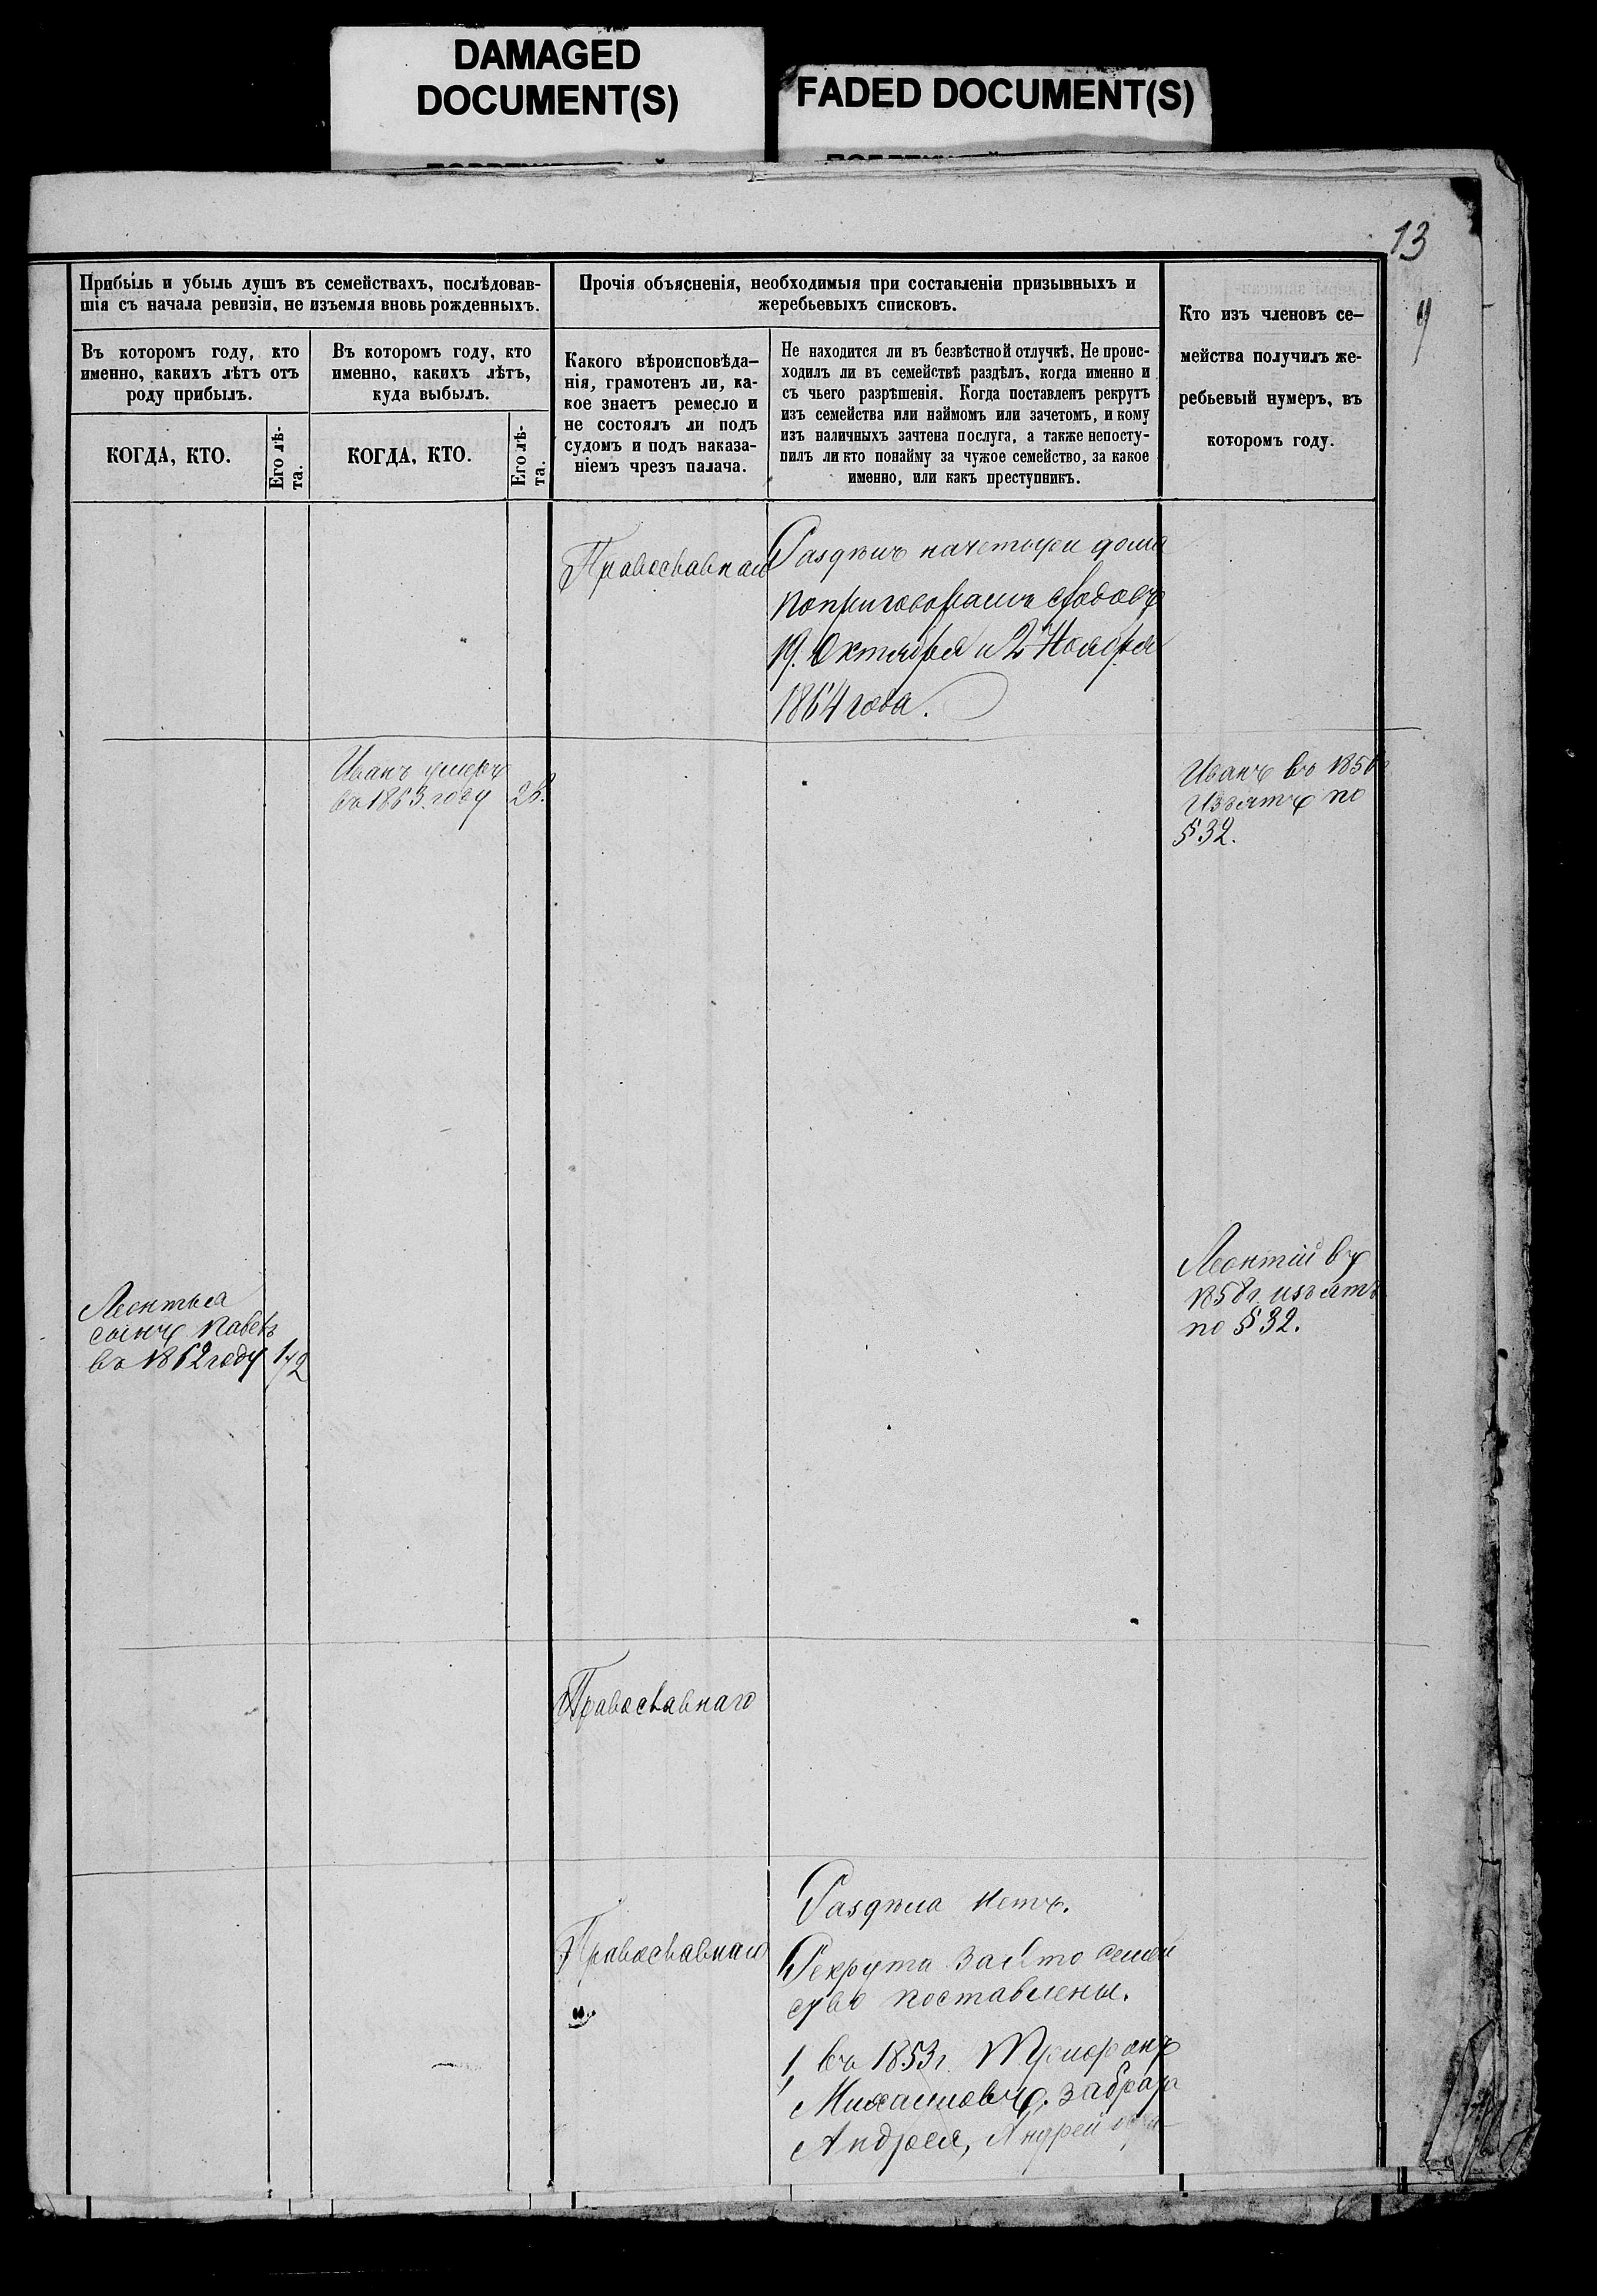 DAMAGED
DOCUMENT(S)
FADED DOCUMENT(S)
13
Прибыль и убыль душъ въ семействахъ, послѣдовав-
шія съ начала ревизіи, не изъемля вновь рожденныхъ.
Въ которомъ году, кто
именно, какихъ лѣтъ отъ
роду прибылъ.
Въ которомъ году, кто
именно, какихъ лѣтъ,
куда выбылъ.
КОГДА, КТО.
Его лѣ-
та.
КОГДА, КТО.
Его лѣ-
та.
Прочія объясненія, необходимыя при составленіи призывныхъ и
жеребьевыхъ списковъ.
Какого вѣроисповѣда-
нія, грамотенъ ли, ка-
кое знаетъ ремесло и
не состоялъ ли подъ
судомъ и подъ наказа-
ніемъ чрезъ палача.
Не находится ли въ безвѣстной отлучкѣ. Не проис-
ходилъ ли въ семействѣ раздѣлъ, когда именно и
съ чьего разрѣшенія. Когда поставленъ рекрутъ
изъ семейства или наймомъ или зачетомъ, и кому
изъ наличныхъ зачтена послуга, а также непосту-
пилъ ли кто понайму за чужое семейство, за какое
именно, или какъ преступникъ.
Кто изъ членовъ се-
мейства получилъ же-
ребьевый нумеръ, въ
которомъ году.
Православнаго
Раздѣлъ начетыре дома
поприговорамъ
19. Октября и 2 Ноября
1864 года.
Иванъ умеръ
въ 1863 году
Иванъ въ
Изъятъ по
§ 32.
Леонтій въ
1858г. изъятъ
по § 32.
Леонтья
сынъ Павелъ
въ 1862 году 1/2
Православнаго
Православнаго
Раздѣла нетъ.
Рекрута за это семей
ство поставлены.
1, въ 1853г. Трифонъ
Михаиловъ, за брата
Андрея, Андрей